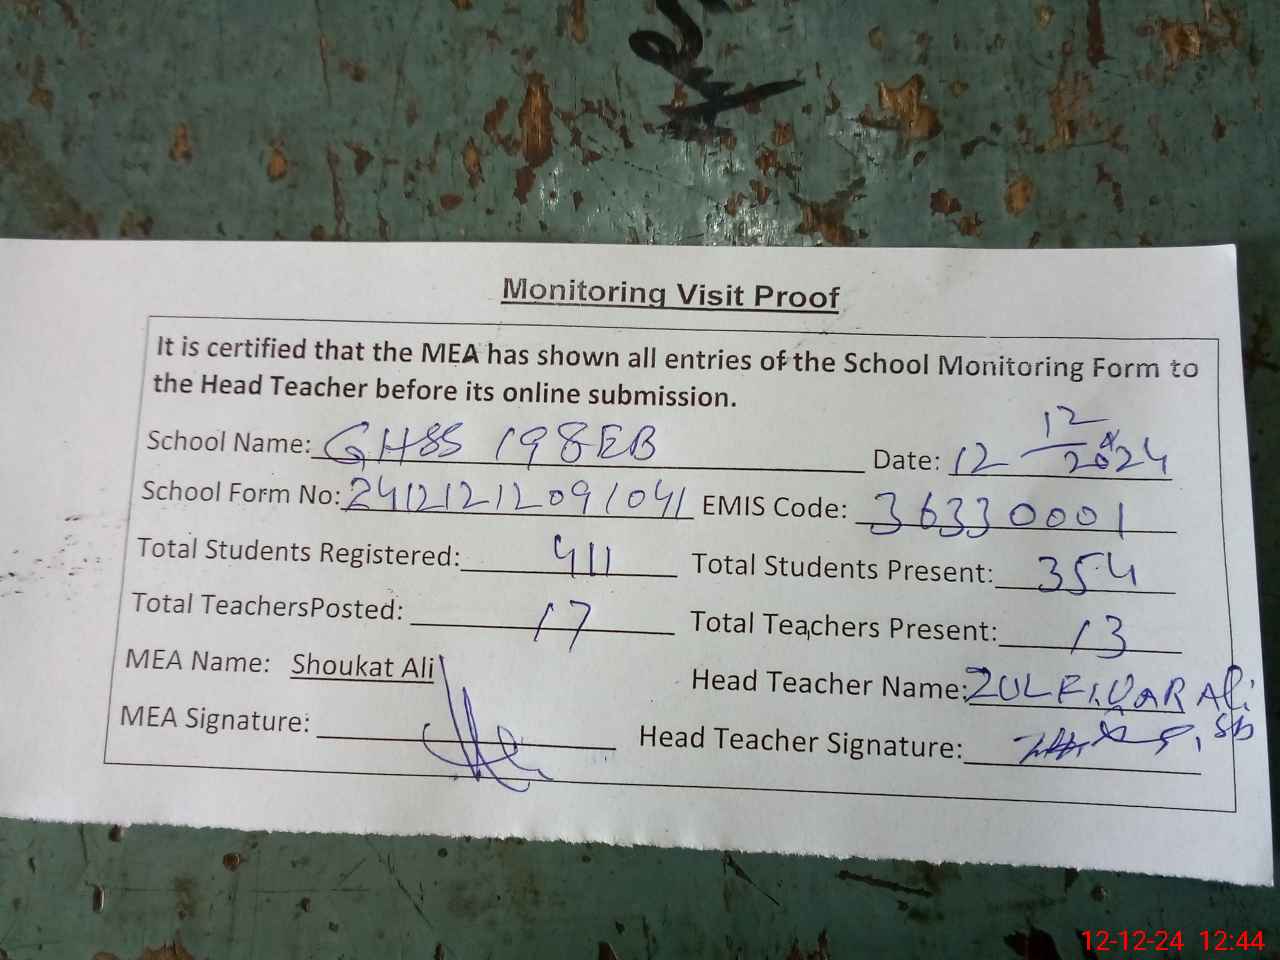 Monitoring Visit Proof
It is certified that the MEA has shown all entries of the School Monitoring Form to
the Head Teacher before its online submission.
School Name: GHSS 198EB Date: 12 12 2024
School Form No: 24121212091041 EMIS Code: 36330001
Total Students Registered: 411 Total Students Present: 354
Total TeachersPosted: 17 Total Teachers Present: 13
MEA Name: Shoukat Ali Head Teacher Name: ZULFIQAR Ali
MEA Signature: Head Teacher Signature:
12-12-24 12:44